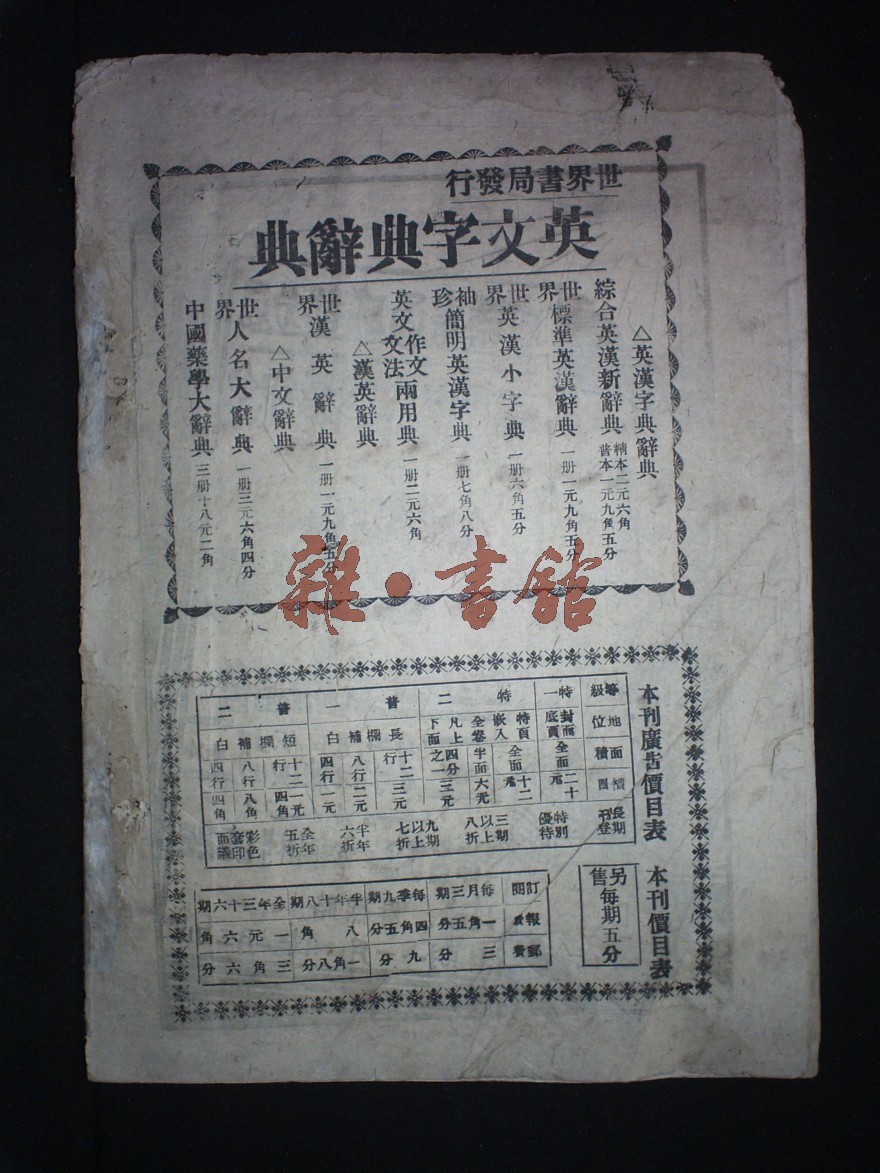 世界書局發行
英文字典辭典
△英漢字典辭典
綜合英漢新辭典 精本二元六角 普本一元九角五分
世界標準英漢辭典 一册一元九角五分
世界英漢小字典 一册六角五分
袖珍簡明英漢字典 一册七角八分
英文作文文法兩用典 一册二元六角
△漢英辭典
世界漢英辭典 一册一元九角五分
△中文辭典
世界人名大辭典 一册三元六角四分
中國藥學大辭典 三册十八元二角
雜·書館
本刊廣告價目表
等級 特一 特二 普一 普二
地位 封面底頁 特頁嵌入全卷凡上下面 長欄補白 短欄補白
面積 全面二十元 全面十二元 半面六元 四分之一三元 十二行三元 八行二元 四行一元 十二行一元四角 八行八角 四行四角
長期刊登 特別優待 三期以上八折 九期以上七折 半年六折 全年五折 彩色套印面議
本刊價目表
另售每期五分
訂閱 每月三期 每季九期 半年十八期 全年三十六期
報費 一角五分 四角五分 八角 一元六角
郵費 三分 九分 一角八分 三角六分